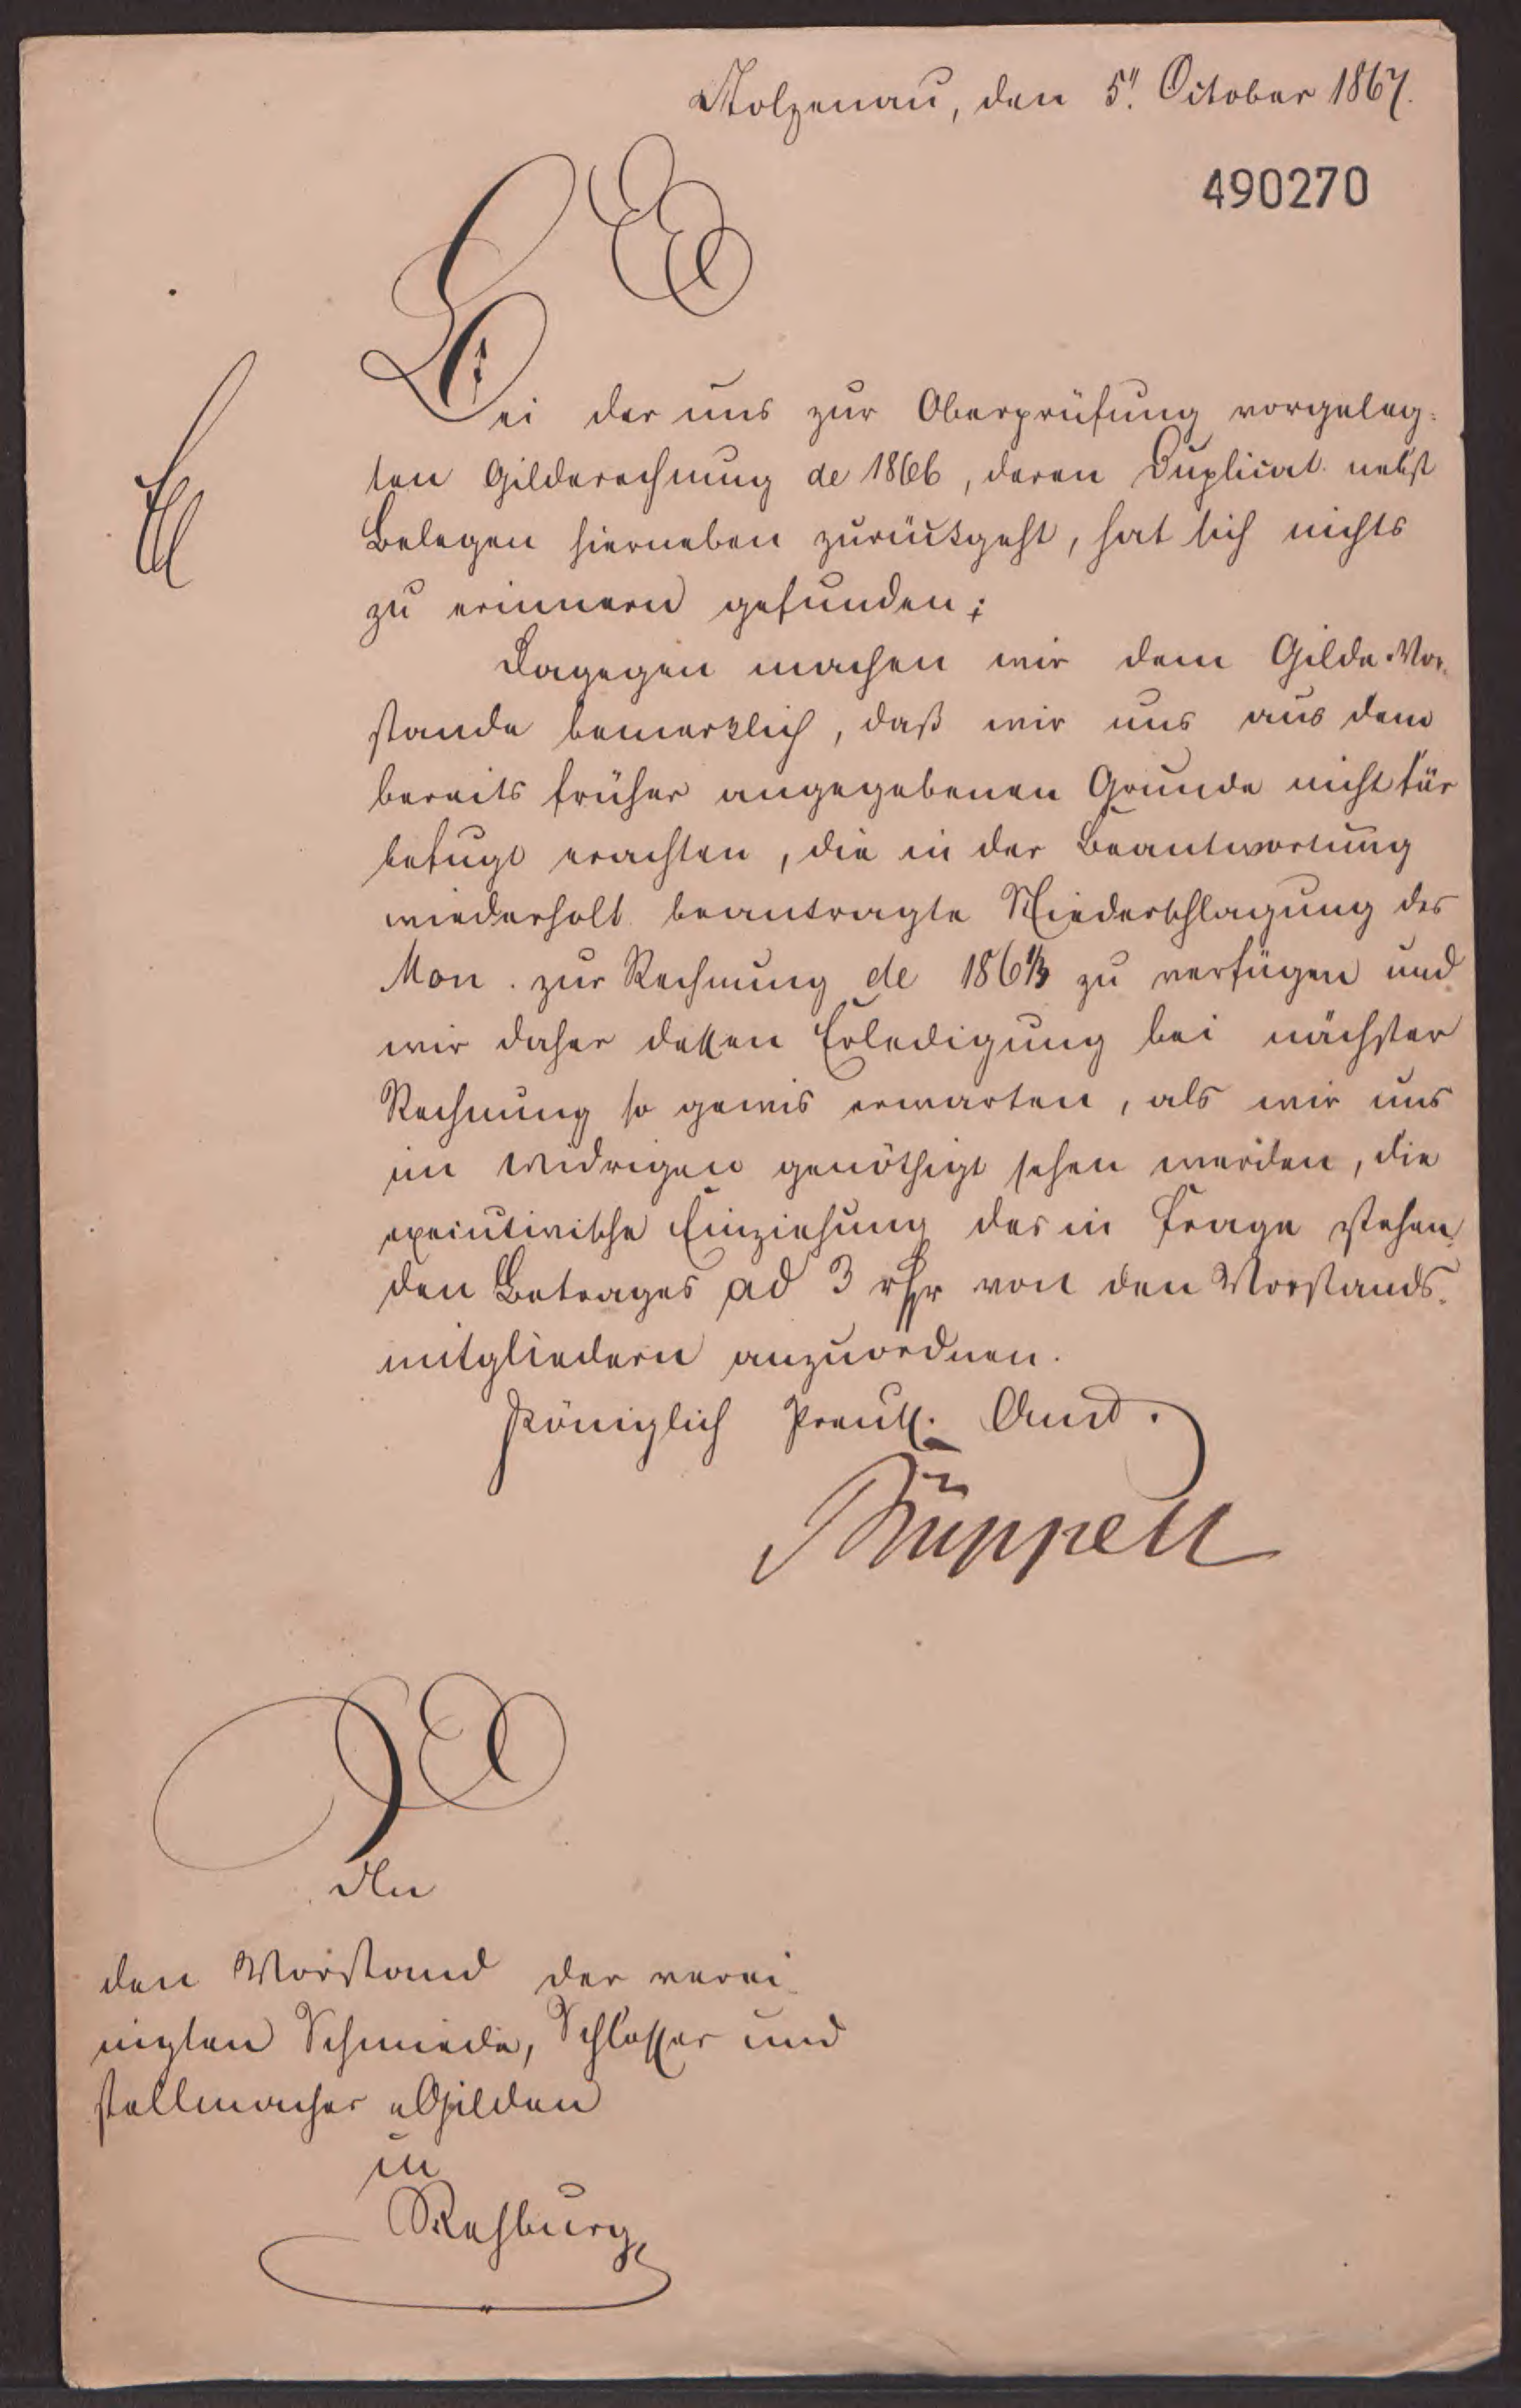 Stolzenau, den 5". October 1867.
490270
Bei der uns zur Oberprüfung vorgeleg-
ten Gilderechnung de 1866, deren Duplicat nebst
Belegen hierneben zurückgeht, hat sich nichts
zu erinnern gefunden;
Dagegen machen wir dem Gilde-Vor-
stande bemerklich, daß wir uns aus dem
bereits früher angegebenen Grunde nicht für
befugt erachten, die in der Beantwortung
wiederholt beantragte Niederschlagung des
Mon. zur Rechnung de zu verfügen und
wir daher dessen Erledigung bei nächster
Rechnung so gewis erwarten, als wir uns
im widrigen genöthigt sehen werden, die
executivische Einziehung des in Frage stehen-
den Betrages ad 3 von den Vorstands-
mitgliedern anzuordnen.
Königlich Preuß. Amt.
Rüppell
An
den Vorstand der verei-
nigten Schmiede, Schlosser und
Stellmacher Gilden
in
Rehburg